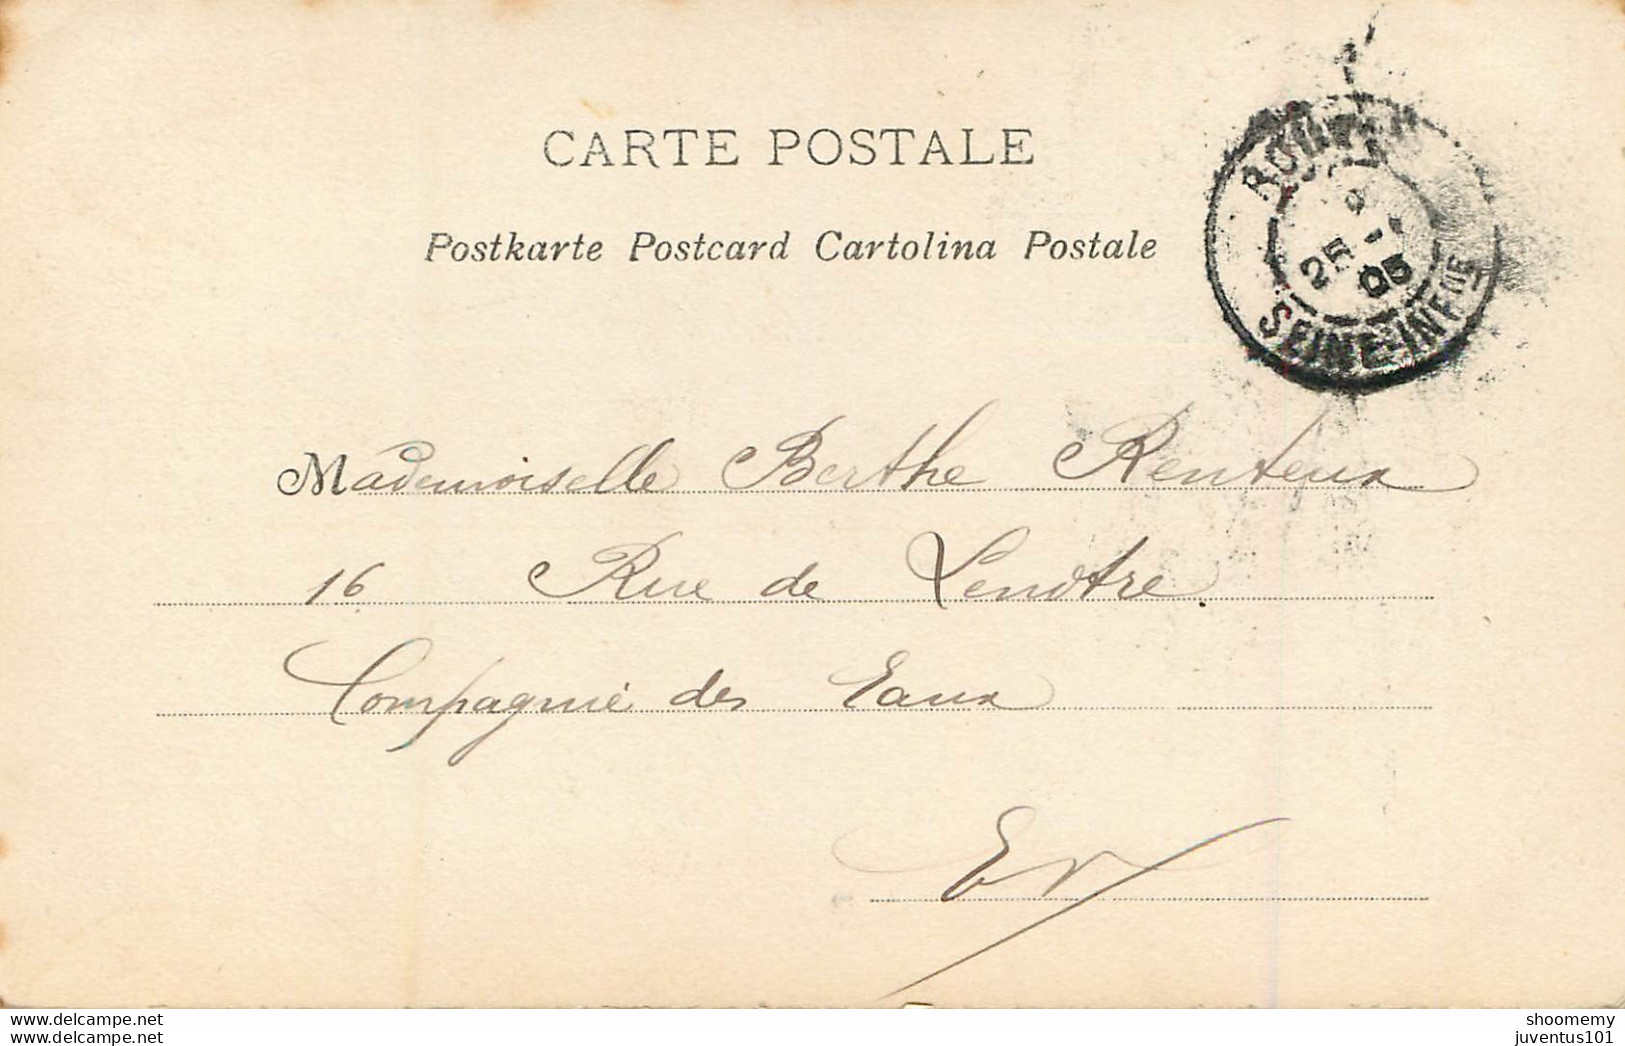 CARTE POSTALE
Postkarte Postcard Cartolina Postale
ROUEN
25 -1
05
SEINE-INFRE
Mademoiselle Berthe Renteux
16 Rue de Lenôtre.
Compagnie des Eaux
EV
www.delcampe.net
shoomemy
www.delcampe.net
juventus101